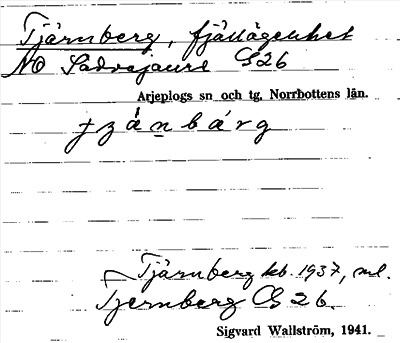 Tjärnberg, fjällägenhet
NO Sädvajaure G26
Arjeplogs sn och tg, Norrbottens län.
Tjärnberg kb. 1937, ml.
Tjernberg GS 26.
Sigvard Wallström, 1941.